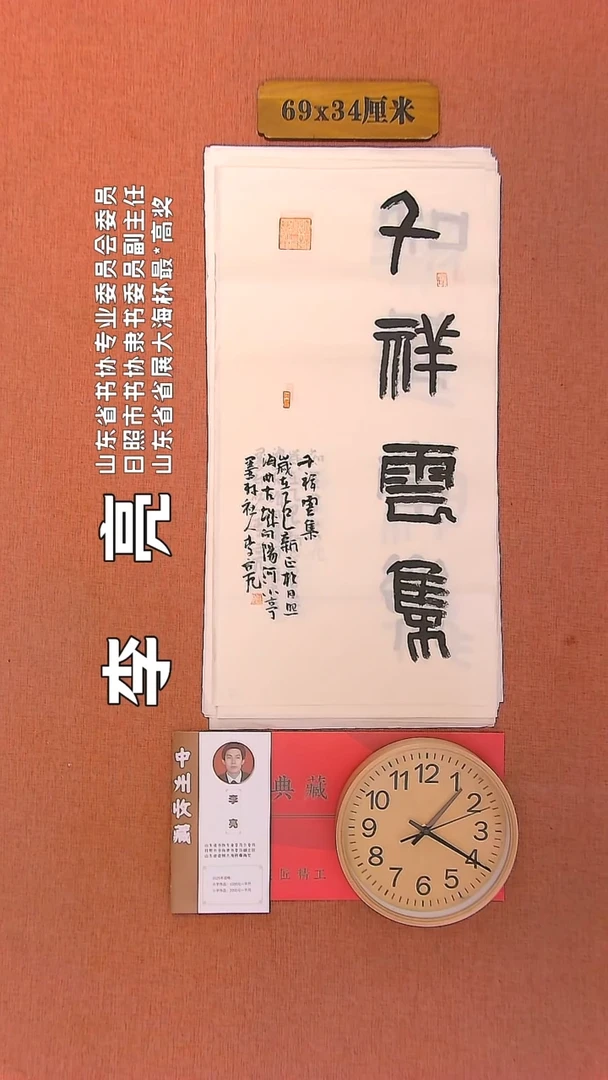 69x34厘米
千祥雲集
千祥雲集
歲在乙巳新正於日照
海曲古城向陽河小亭
墨 社人李亮
山东省书协专业委员会委员
日照市书协隶书委员副主任
山东省省展大海杯最*高奖
李亮
李亮
典藏
匠精工
12
1
2
3
4
5
6
7
8
9
10
11